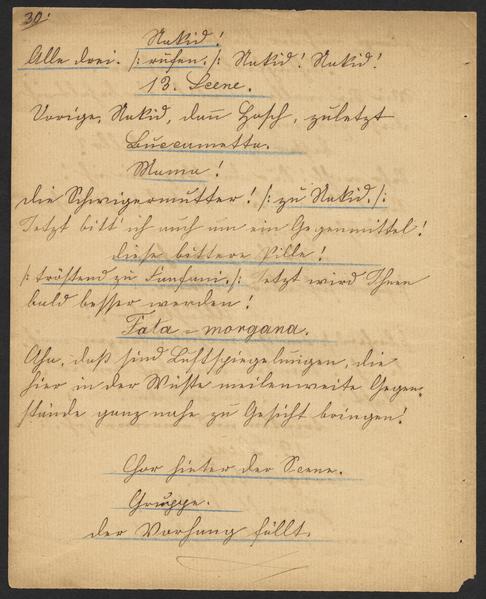 30.
Nakid!
Alle drei. /: rufen. /: Nakid! Nakid!
13. Scene.
Vorige, Nakid, dann Hosch, zuletzt
Buccametta.
Mama!
die Schwigermutter! /: zu Nakid. /:
Jetzt bitt' ich auch um ein Gegenmittel!
diese bittere Pille!
/: tröstend zu Fanfani. /: Jetzt wird Ihnen
bald besser werden!
Fata-morgana.
Aha, daß sind Luftspiegelungen, die
hier in der Wüste meilenweite Gegen-
stände ganz nahe zu Gesicht bringen!
Chor hinter der Scene.
Gruppe.
der Vorhang fällt.